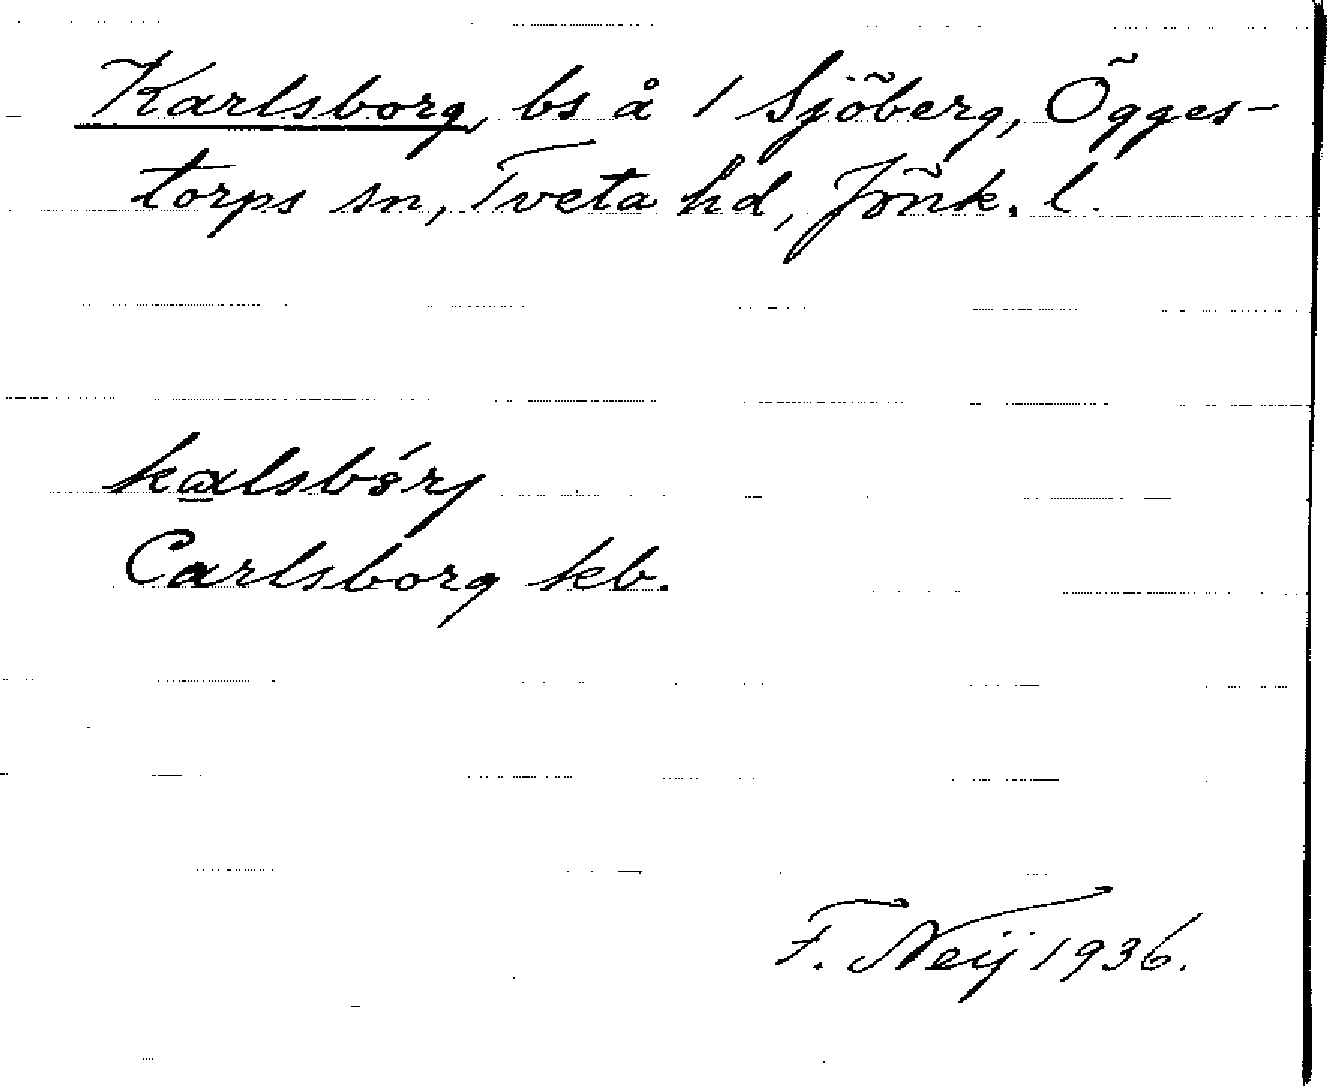 Karlsborg, bs å 1 Sjöberg, Ögges-
torps sn, Tveta hd, Jönk. l.
Carlsborg kb.
F. Neij 1936.